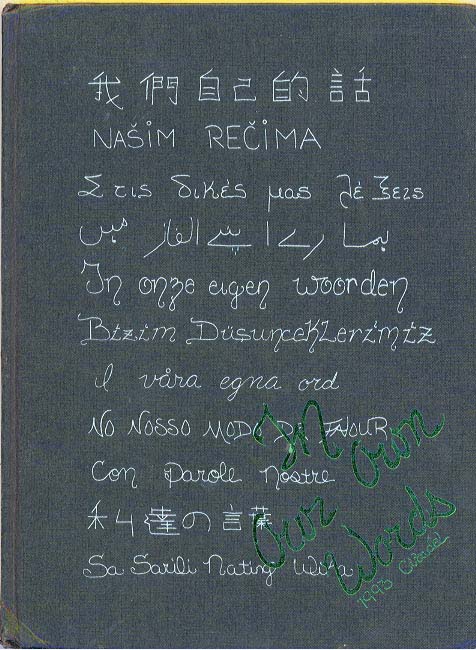 我們自己的話
NAŠIM REČIMA
Στις δικές μας λέξεις
ہمارے اپنے الفاظ میں
In onze eigen woorden
Bizim Düşünceklerimiz
I våra egna ord
NO NOSSO MODO DE
Con parole nostre
私達の言葉
Sa Sarili Nating Wika
In Our Own Words
1993 Citadel